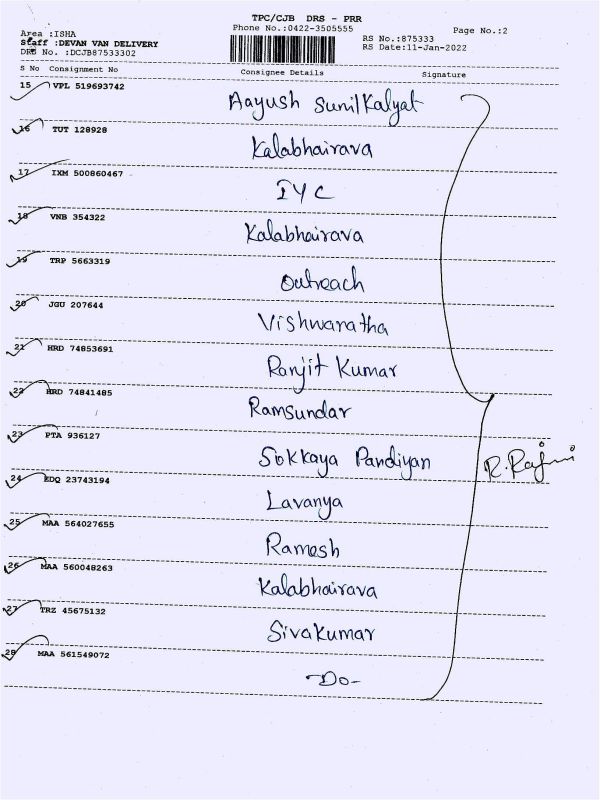 TPC/CJB DRS - PRR
Phone No.:0422-3505555
Page No.:2
Area :ISHA
Staff :DEVAN VAN DELIVERY
DRS No. :DCJB87533302
RS No.:875333
RS Date:11-Jan-2022
S No Consignment No Consignee Details Signature
15 VPL 519693742
Aayush Sunil Kalyat
16 TUT 128928
Kalabhairava
17 IXM 500860467
IYC
18 VNB 354322
Kalabhairava
19 TRP 5663319
Outreach
20 JGU 207644
Vishwaratha
21 HRD 74853691
Ranjit Kumar
22 HRD 74841485
Ramsundar
23 PTA 936127
Sokkaya Pandiyan
R. Rajini
24 EDQ 23743194
Lavanya
25 MAA 564027655
Ramesh
26 MAA 560048263
Kalabhairava
27 TRZ 45675132
Sivakumar
28 MAA 561549072
-Do-